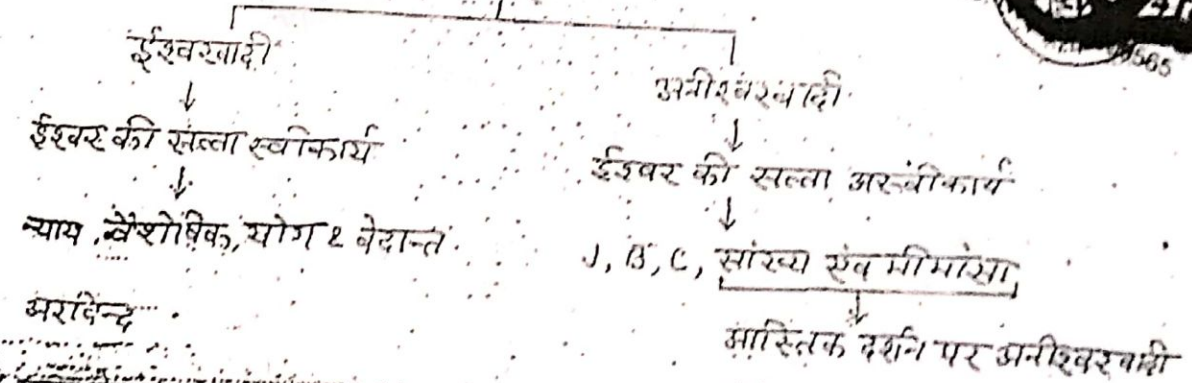 ईश्वरवादी
ईश्वर की सत्ता स्वीकार्य
न्याय, वैशेषिक, योग & वेदान्त.
अरविन्द
अनीश्वरवादी
ईश्वर की सत्ता अस्वीकार्य
J, B, C, सांख्य एंव मीमांसा
आस्तिक दर्शन पर अनीश्वरवादी